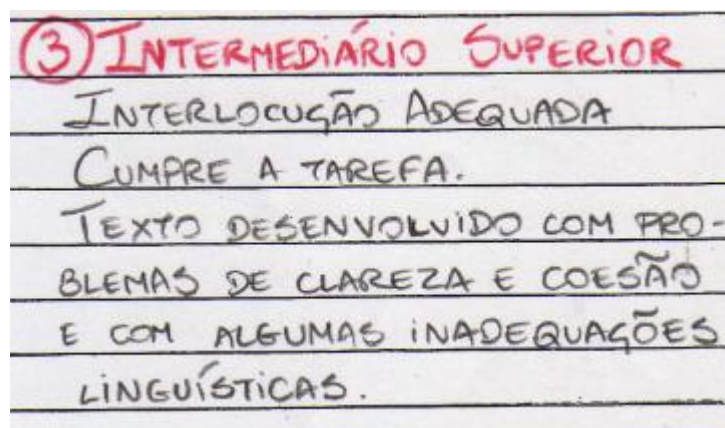 3 INTERMEDIÁRIO SUPERIOR
INTERLOCUÇÃO ADEQUADA
CUMPRE A TAREFA.
TEXTO DESENVOLVIDO COM PRO-
BLEMAS DE CLAREZA E COESÃO
E COM ALGUMAS INADEQUAÇÕES
LINGUÍSTICAS.